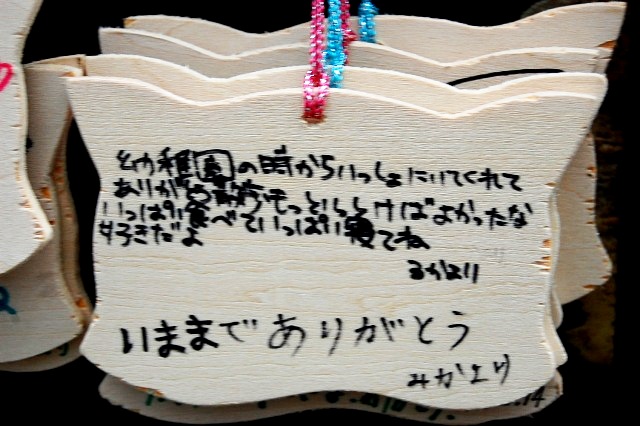 幼稚園の時からいっしょにいてくれて
ありがとう もっといっしょにいればよかったな
いっぱい食べていっぱい寝てね
好きだよ
るかより
いままでありがとう
みかより